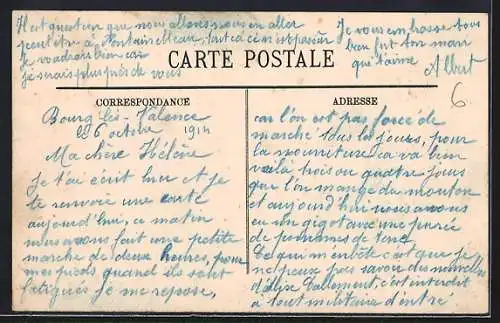 Il est question que nous allons nous en aller
peut être à Fontainebleau, tout ca ce n'est pas sur
Je voudrais bien car
je serais plus près de vous
Je vous embrasse tous
bien fort ton mari
qui t'aime
Albert
6
CARTE POSTALE
CORRESPONDANCE
ADRESSE
Bourg lès-Valence
le 6 octobre 1914
Ma chère Hélène
Je t'ai écrit hier et je
te renvoie une carte
aujourd'hui, ce matin
nous avons fait une petite
marche de deux heures, pour
mes pieds quand ils sont
fatigués je me repose,
car l'on est pas forcé de
marché tous les jours, pour
la nourriture ca va bien
voilà trois ou quatre jours
que l'on mange du mouton
et aujourd'hui nous avons
eu un gigot avec une purée
de pommes de terre
Ce qui m'embête c'est que je
ne peux pas savoir des nouvelles
d'Alice Lallement, c'est interdit
à tout militaire d'entré